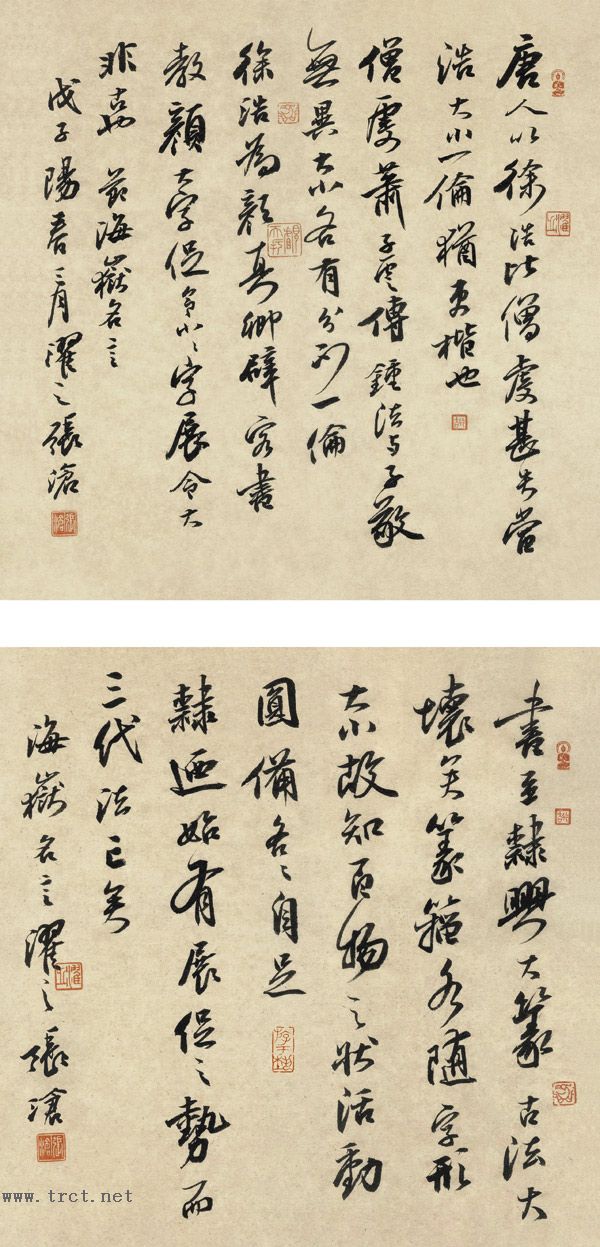 唐人以徐浩比僧虔甚失當
浩大小一倫猶吏楷也
僧虔蕭子雲傳鍾法与子敬
無異大小各有分不一倫
徐浩為顏真卿辟客書
教顏大字促令小〻字展令大
非古也 節海嶽名言
戊子陽春三月濯之張滄
書至隸興大篆古法大
壞矣篆籀各隨字形
大小故知百物之狀活動
圓備各〻自足
隸迺始有展促之勢而
三代法亡矣
海嶽名言濯之張滄
www.trct.net